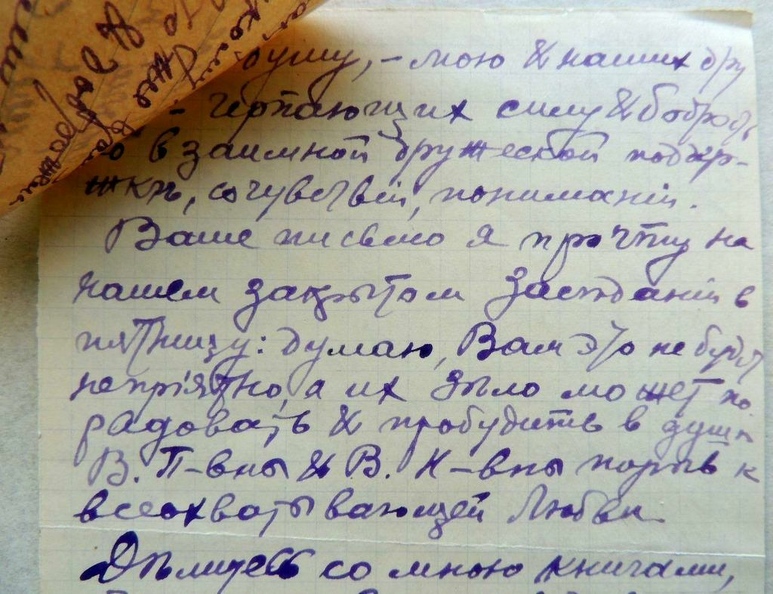 душу, - мою & наших дру
- черпающих силу & бодрость
во взаимной дружеской поддер-
жкѣ, сочувствіи, пониманіи.
Ваше письмо я прочту на
нашем закрытом заседаніи в
пятницу: думаю, Вам это не будет
непріятно, а их зѣло может по
радовать & пробудить в душѣ
В. П-вны & В. Н-вны порыв к
всеохватывающей Любви.
Дѣлитесь со мною книгами,